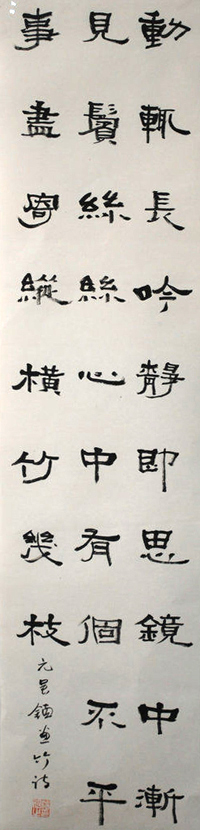 動輒長吟靜即思鏡中漸
見鬢絲絲心中有個不平
事盡寄縱橫竹幾枝
元吳鎮畫竹詩